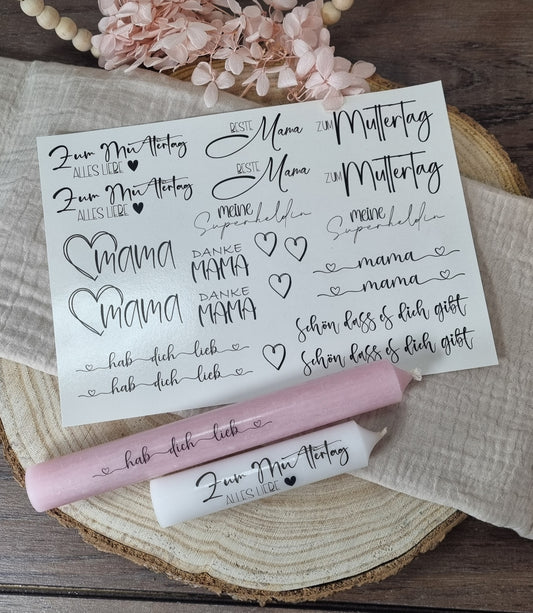 Zum Muttertag
ALLES LIEBE
Zum Muttertag
ALLES LIEBE
BESTE Mama
BESTE Mama
ZUM Muttertag
ZUM Muttertag
meine
Superheldin
meine
Superheldin
mama
mama
DANKE
MAMA
DANKE
MAMA
mama
mama
hab dich lieb
hab dich lieb
schön dass es dich gibt
schön dass es dich gibt
hab dich lieb
Zum Muttertag
ALLES LIEBE